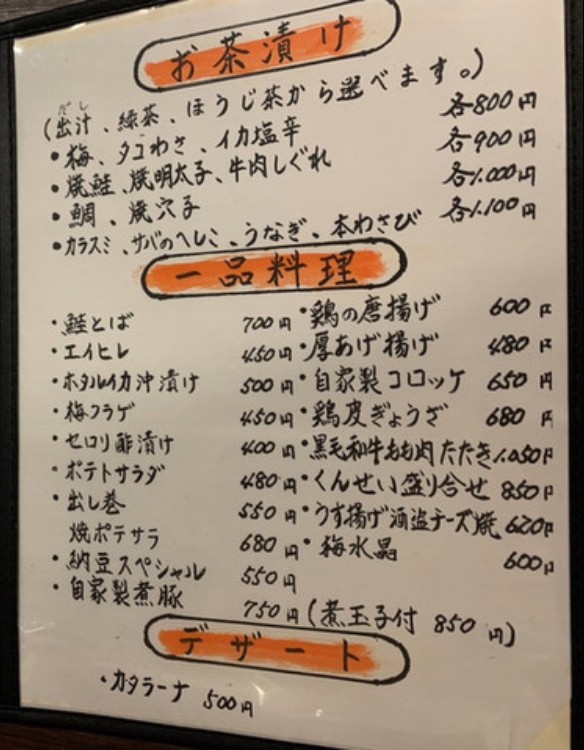 お茶漬け
だし
(出汁、緑茶、ほうじ茶から選べます。)
●梅、タコわさ、イカ塩辛 各800円
●焼鮭、焼明太子、牛肉しぐれ 各900円
●鯛、焼穴子 各1.000円
●カラスミ、サバのへしこ、うなぎ、本わさび 各1.100円
一品料理
・鮭とば 700円
・エイヒレ 450円
・ホタルイカ沖漬け 500円
・梅クラゲ 450円
・セロリ酢漬け 400円
・ポテトサラダ 480円
・出し巻 550円
焼ポテサラ 680円
・納豆スペシャル 550円
・自家製煮豚 750円(煮玉子付 850円)
・鶏の唐揚げ 600円
・厚あげ揚げ 480円
・自家製コロッケ 650円
・鶏皮ぎょうざ 680円
・黒毛和牛もも肉たたき1.050円
・くんせい盛り合せ 850円
・うす揚げ酒盗チーズ焼 620円
・梅水晶 600円
デザート
・カタラーナ 500円